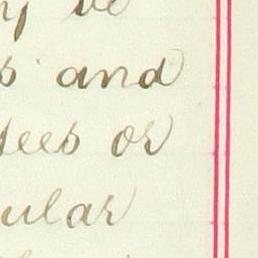 be
s and
tees or
ular